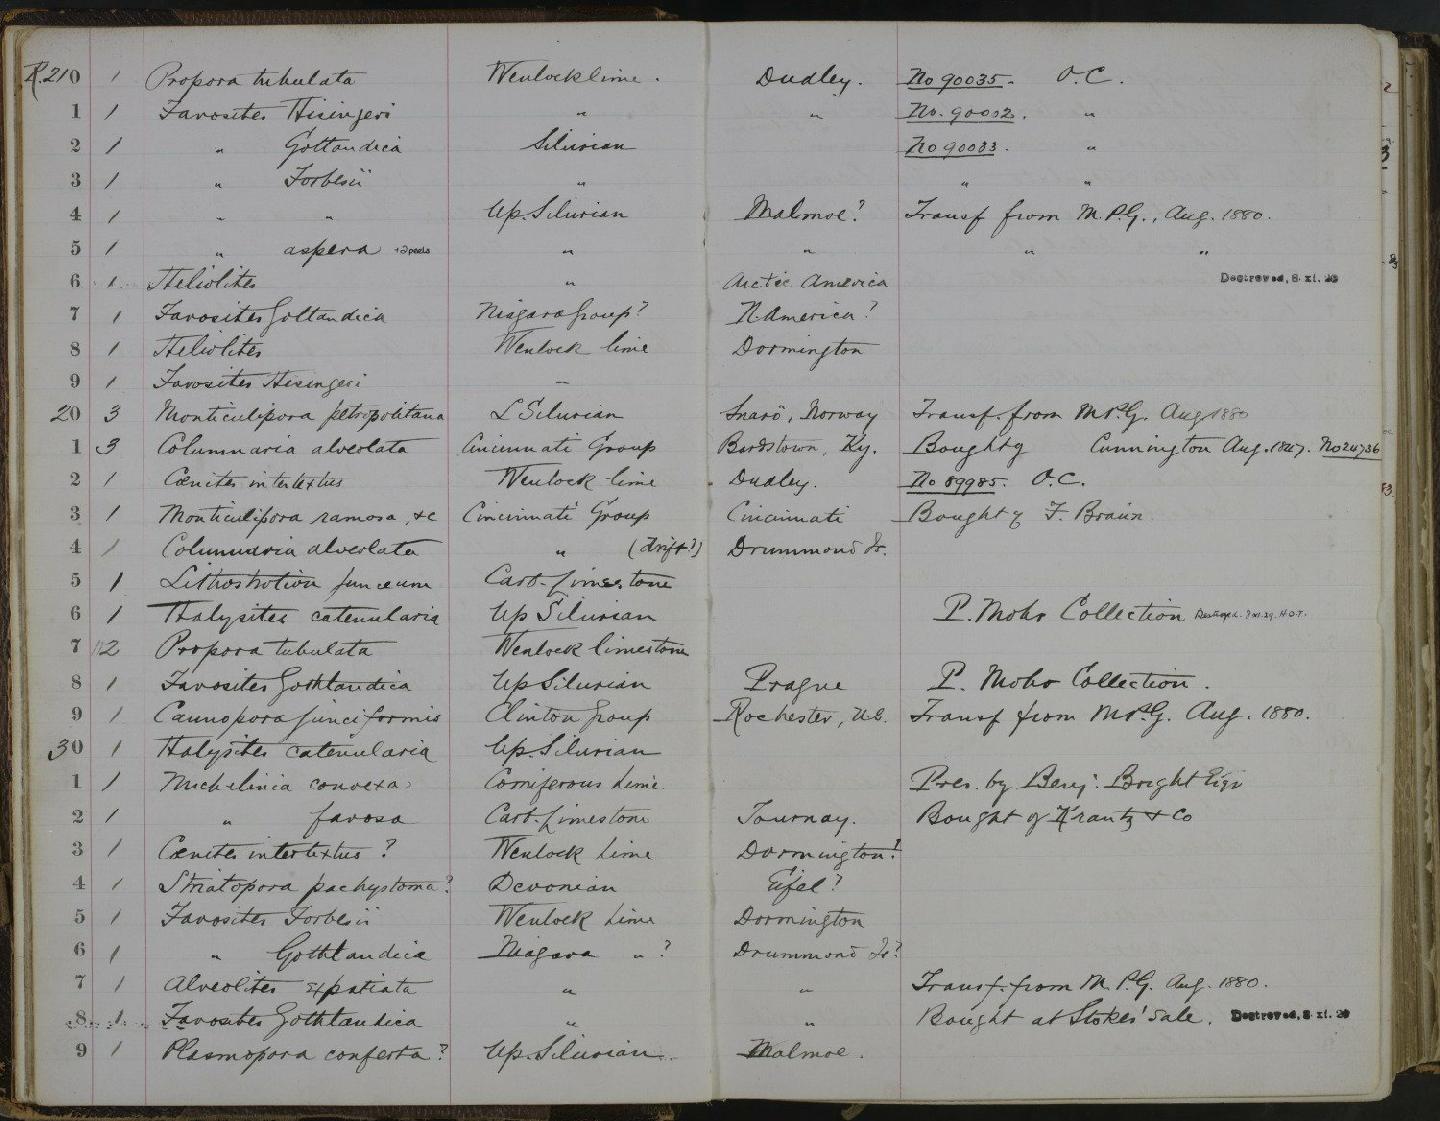 R.210 1 Propora tubulata Wenlock lime. Dudley. No 90035. O.C.
1 1 Favosites Hisingeri " " No. 90002. "
2 1 " Gottandica Silurian No 90033. "
3 1 " Forbesii " " "
4 1 " " Up. Silurian Malmoe? Transf from M.P.G., Aug. 1880.
5 1 " aspera +2 peels " " " "
6 1 Heliolites " Arctic America Destroyed, 8. xi. 29
7 1 Favosites Gottandica Niagara Group? N. America?
8 1 Heliolites Wenlock lime Dormington
9 1 Favosites Hisingeri "
20 3 Monticulipora petropolitana L Silurian Snarö, Norway Transf. from M.P.G. Aug 1880
1 3 Columnaria alveolata Cincinnati Group Bardstown, Ky. Bought of Cunnington Aug. 1847. No 24736
2 1 Cœnites intertextus Wenlock lime Dudley. No 89985. O.C.
3 1 Monticulipora ramosa, &c Cincinnati Group Cincinnati Bought of F. Braun
4 1 Columnaria alveolata " (Drift?) Drummond Is.
5 1 Lithostrotion junceum Carb. Limestone
6 1 Halysites catenularia Up Silurian P. Mohr Collection
7 2 Propora tubulata Wenlock limestone
8 1 Favosites Gothlandica Up Silurian Prague P. Mohr Collection.
9 1 Caunopora junciformis Clinton Group Rochester, U.S. Transf from M.P.G. Aug. 1880.
30 1 Halysites catenularia Up. Silurian
1 1 Michelinia convexa Corniferous Lime. Pres. by Benj. Bright Esqr
2 1 " favosa Carb. Limestone Tournay. Bought of Krantz & Co
3 1 Cœnites intertextus? Wenlock Lime Dormington?
4 1 Striatopora pachystoma? Devonian Eifel?
5 1 Favosites Forbesii Wenlock Lime Dormington
6 1 " Gothlandica Niagara "? Drummond Is?
7 1 Alveolites expatiata " " Transf. from M.P.G. Aug. 1880.
8 1 Favosites Gothlandica " " Bought at Stokes' Sale. Destroyed, 8. xi. 29
9 1 Plasmopora conferta? Up. Silurian Malmoe.